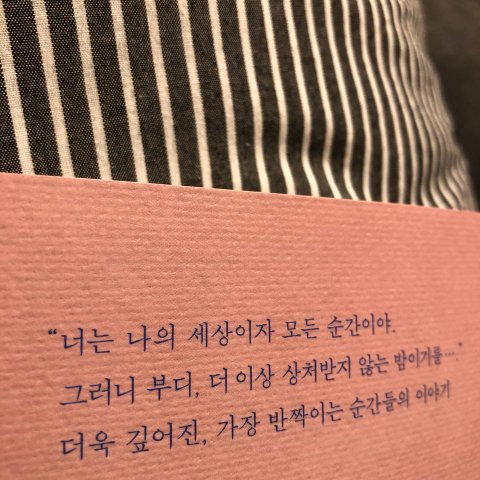 “너는 나의 세상이자 모든 순간이야.
그러니 부디, 더 이상 상처받지 않는 밤이기를….”
더욱 깊어진, 가장 반짝이는 순간들의 이야기